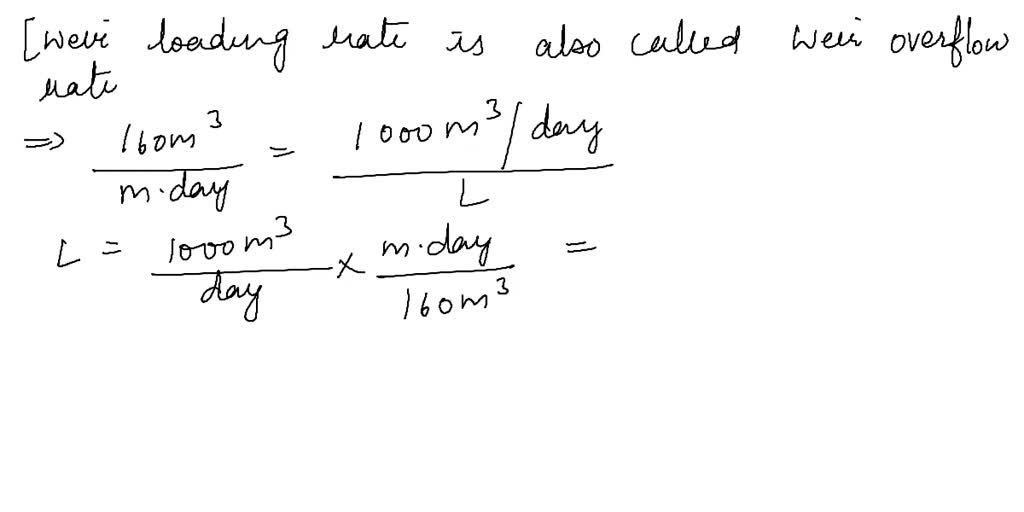 [Weir loading rate is also called Weir overflow
rate
⇒ 160m³/m·day = 1000m³/day / L
L = 1000m³/day × m·day/160m³ =